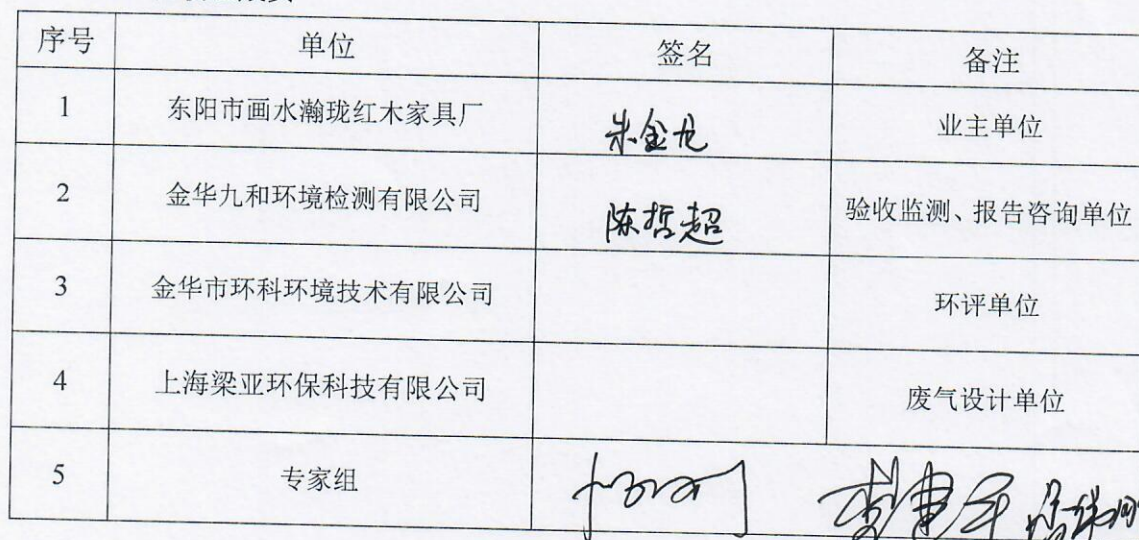 序号 单位 签名 备注
1 东阳市画水瀚珑红木家具厂 朱金龙 业主单位
2 金华九和环境检测有限公司 陈哲超 验收监测、报告咨询单位
3 金华市环科环境技术有限公司 环评单位
4 上海梁亚环保科技有限公司 废气设计单位
5 专家组